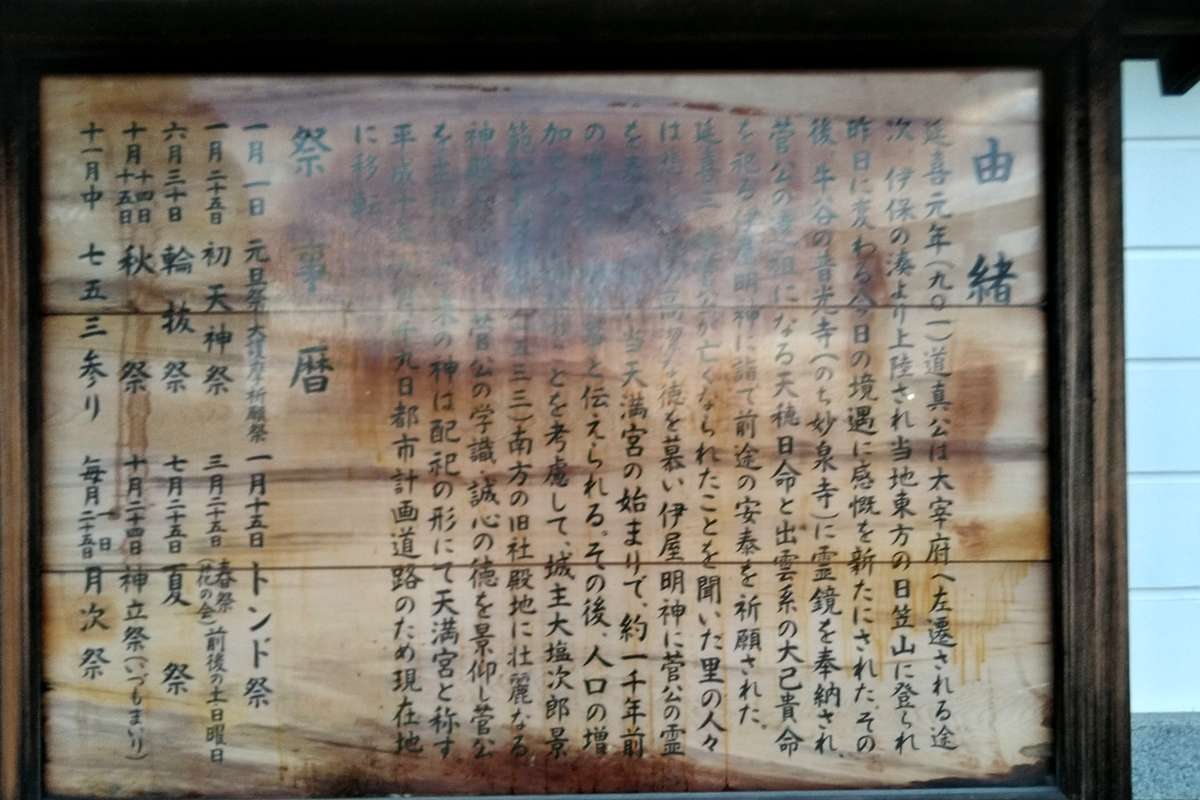 由緒
延喜元年(九〇一)道真公は太宰府へ左遷される途
次 伊保の湊より上陸され当地東方の日笠山に登られ
昨日に変わる今日の境遇に感慨を新たにされた。その
後、牛谷の音光寺(のち妙泉寺)に霊鏡を奉納され、
菅公の遠祖になる天穂日命と出雲系の大己貴命
を祀る伊屋明神に詣で前途の安泰を祈願された。
延喜三 公が亡くなられたことを聞いた里の人々
は な徳を慕い伊屋明神に菅公の霊
を 当天満宮の始まりで、約一千年前
の と伝えられる。その後、人口の増
加 とを考慮して、城主大塩次郎景
範 五三三)南方の旧社殿地に壮麗なる
神殿 菅公の学識、誠心の徳を景仰し菅公
を主 来の神は配祀の形にて天満宮と称す
平成十 月十九日都市計画道路のため現在地
に移転
祭事暦
一月一日 元旦祭・大護摩祈願祭 一月十五日 トンド祭
一月二十五日 初天神祭 三月二十五日 春祭(花の会)前後の土日曜日
六月三十日 輪抜祭 七月二十五日 夏祭
十月十四日十五日 秋祭 十月二十四日 神立祭(いづもまいり)
十一月中 七五三参り 毎月一日二十五日 月次祭